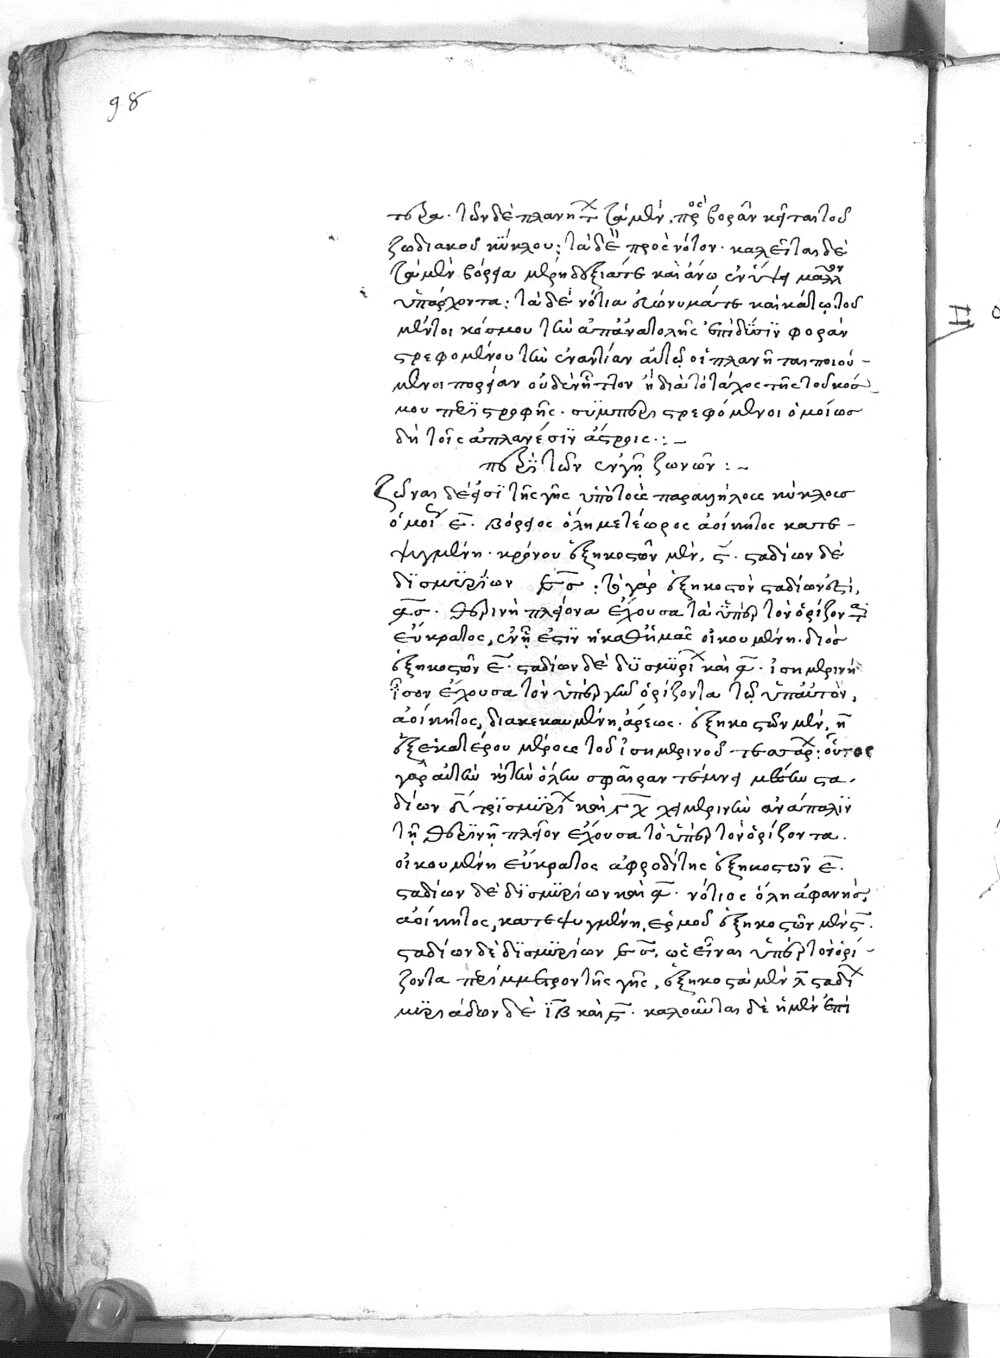 98
τερα. τῶν δὲ πλανητ τὰ μὲν πρὸς βορᾶν κεῖται τοῦ
ζωδιακοῦ κύκλου: τὰ δὲ πρὸς νότον. καλεῖται δὲ
τὰ μὲν βόρεια μέρη δεξιά τε καὶ ἄνω ἐν ὕψει μᾶλλον
ὑπάρχοντα: τὰ δὲ νότια εὐώνυμά τε καὶ κάτω. τοῦ
μέντοι κόσμου τὴν ἀπ' ἀνατολῆς ἐπὶ δύσιν φορὰν
στρεφομένου τὴν ἐναντίαν αὐτῷ οἱ πλανῆται ποιού-
μενοι πορείαν οὐδὲν ἧττον ἢ διὰ τὸ τάχος τῆς τοῦ κόσ-
μου περιστροφῆς. συμπεριστρεφόμενοι ὁμοίως
δὴ τοῖς ἀπλανέσιν ἄστροις:-
περὶ τῶν ἐν γῇ ζωνῶν:-
Ζῶναι δέ εἰσι τῆς γῆς ὑπὸ τοῖς παραλλήλοις κύκλοις
ὁμοῦ ε. βόρειος ὅλη μετέωρος ἀοίκητος κατε-
ψυγμένη. κρόνου ἑξηκοστῶν μὲν ς. σταδίων δὲ
δισμυρίων ἑξηκοστὸν σταδίων
θερινὴ πλείονα ἔχουσα τὰ ὑπὲρ τὸν ὁρίζοντα
εὔκρατος, ἐν ᾗ ἐστιν ἡ καθ' ἡμᾶς οἰκουμένη. διὸς
ἑξηκοστῶν ε. σταδίων δὲ δισμυρι καὶ φ. ἰσημερινὴ
ἴσον ἔχουσα τὸν ὑπὲρ γῆν ὁρίζοντα τῷ ὑπ' αὐτὸν,
ἀοίκητος, διακεκαυμένη, ἄρεως. ἑξηκοστῶν μὲν η
ἐξ ἑκατέρου μέρους τοῦ ἰσημερινοῦ τεσσαρ: οὗτος
γὰρ αὐτὴν τὴν ὅλην σφαῖραν τέμνει μέσην στα-
δίων δὲ τρισμυρι καὶ χειμερινὴν ἀνάπαλιν
τῇ θερινῇ πλεῖον ἔχουσα τὸ ὑπὲρ τὸν ὁρίζοντα.
οἰκουμένη εὔκρατος ἀφροδίτης ἑξηκοστῶν ε.
σταδίων δὲ δισμυρίων καὶ φ. νότιος ὅλη ἀφανὴς,
ἀοίκητος, κατεψυγμένη, ἑρμοῦ ἑξηκοστῶν μὲν ς.
σταδίων δὲ δισμυρίων ὡς εἶναι ὑπὲρ τὸν ὁρί-
ζοντα περίμετρον τῆς γῆς, ἑξηκοστὰ μὲν λ σταδι
μυριάδων δὲ ιβ καὶ ς. καλοῦνται δὲ ἡ μὲν ἐπὶ